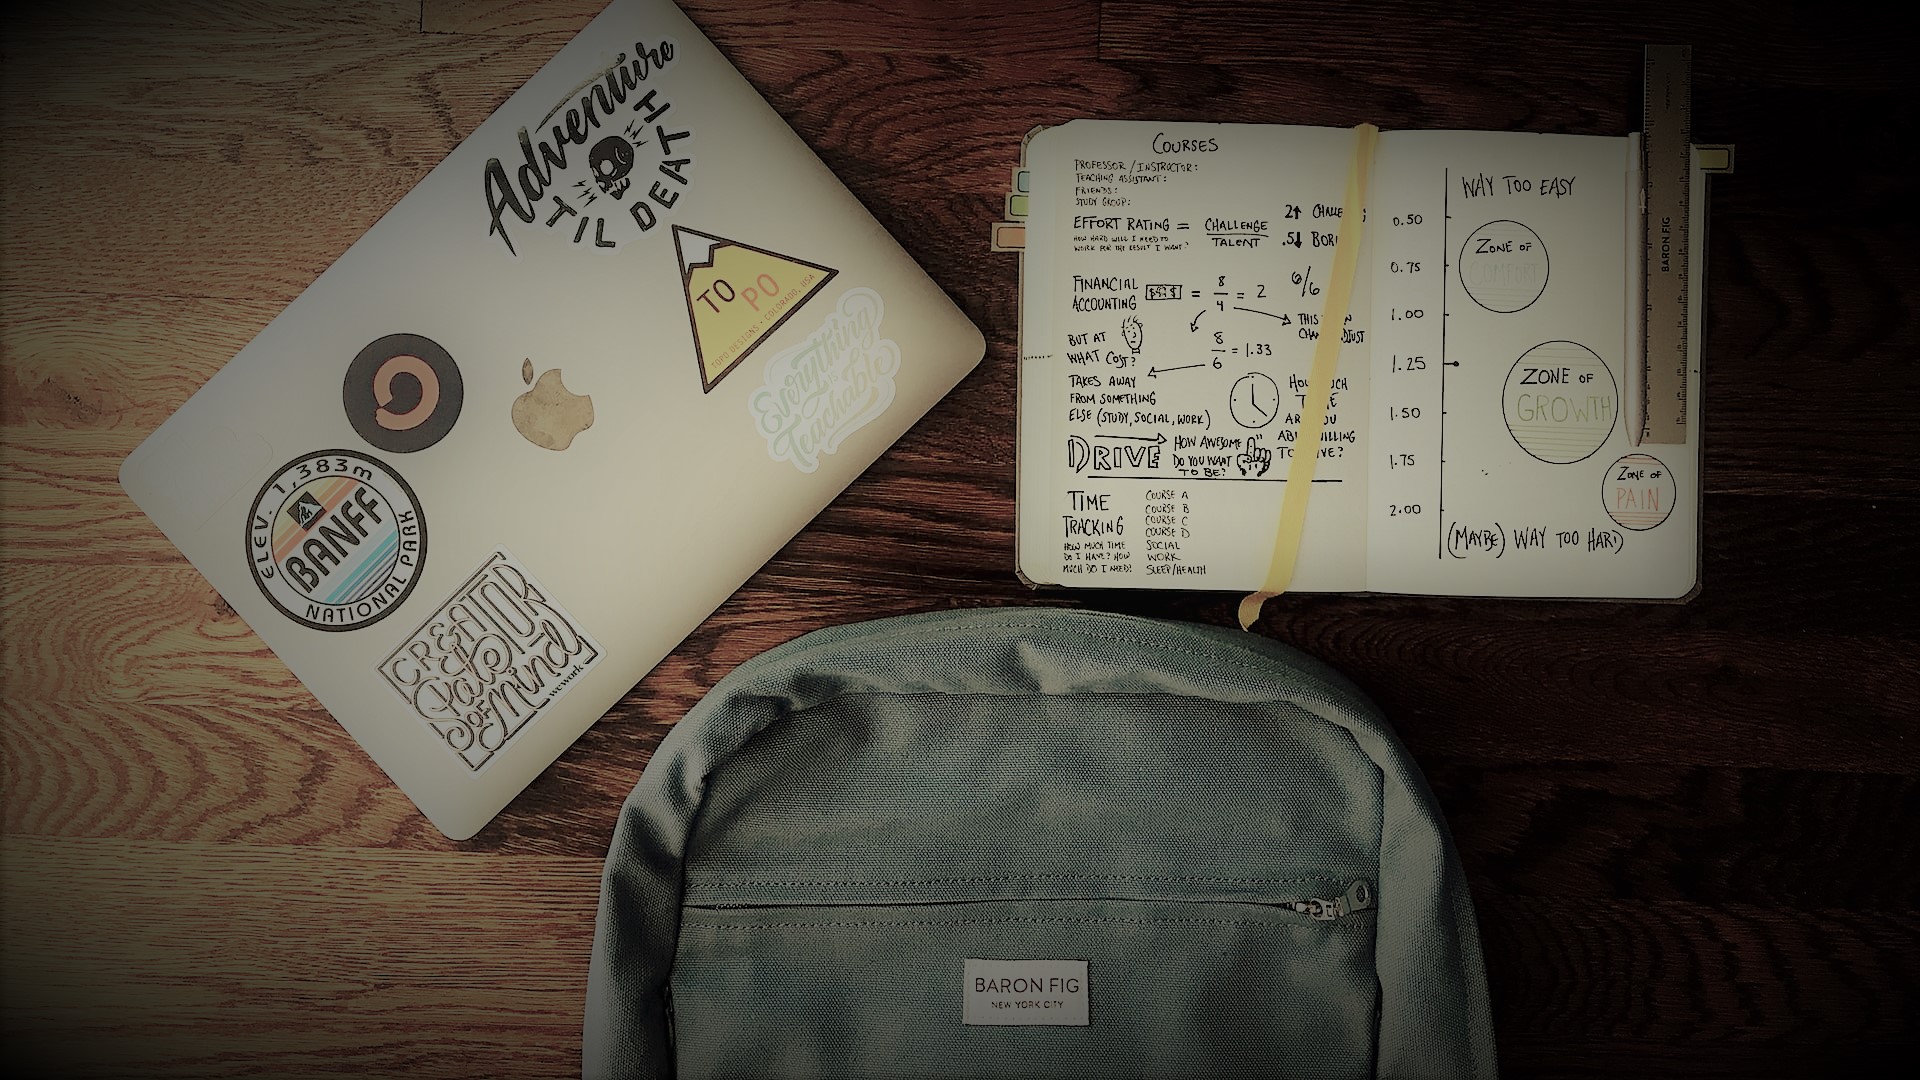 Adventure
TIL DEATH
TO PO
TOPO DESIGNS • COLORADO, USA
Everything
is
Teachable
ELEV. 1,383m
BANFF
NATIONAL PARK
CREATOR
State
OF Mind
wework
COURSES
PROFESSOR / INSTRUCTOR:
TEACHING ASSISTANT:
FRIENDS:
STUDY GROUP:
EFFORT RATING = CHALLENGE
TALENT
HOW HARD WILL I NEED TO
WORK FOR THE RESULT I WANT?
2↑ CHALLE
.5↓ BORI
FINANCIAL
ACCOUNTING
= 8/4 = 2
6/6
THIS
CHAN
JUST
BUT AT
WHAT COST?
8/6 = 1.33
TAKES AWAY
FROM SOMETHING
ELSE (STUDY, SOCIAL, WORK)
HOW MUCH
TIME
ARE YOU
WILLING
DRIVE
HOW AWESOME
DO YOU WANT
TO BE?
TIME
TRACKING
HOW MUCH TIME
DO I HAVE? HOW
MUCH DO I NEED?
COURSE A
COURSE B
COURSE C
COURSE D
SOCIAL
WORK
SLEEP/HEALTH
WAY TOO EASY
0.50
0.75
1.00
1.25
1.50
1.75
2.00
ZONE OF
COMFORT
ZONE OF
GROWTH
ZONE OF
PAIN
(MAYBE) WAY TOO HARD
BARON FIG
BARON FIG
NEW YORK CITY